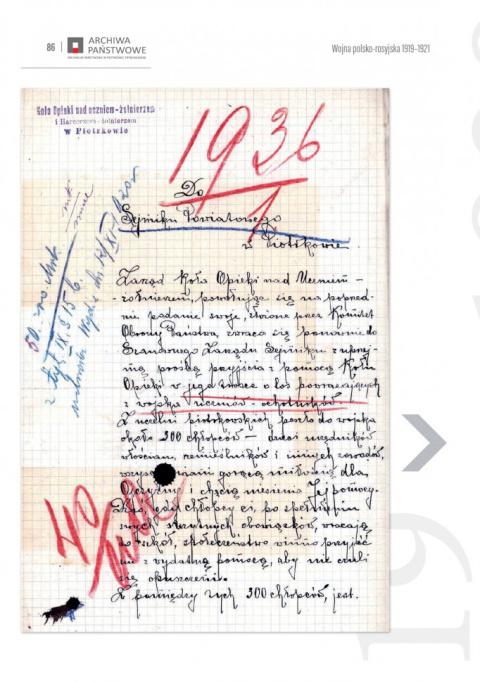 86
ARCHIWA
PAŃSTWOWE
Wojna polsko-rosyjska 1919–1921
Koło Opieki nad uczniem-żołnierzem
i Harcerzem-żołnierzem
w Piotrkowie
1936
1
Do
Sejmiku Powiatowego
w Piotrkowie
Zarząd Koła Opieki nad Uczniem-
żołnierzem, powołując się na poprzed-
nie podanie swoje, złożone przez Komitet
Obrony Państwa, zwraca się ponownie do
Szanownego Zarządu Sejmiku z uprzej-
mą prośbą przyjścia z pomocą Kołu
Opieki w jego trosce o los powracających
z wojska uczniów-ochotników.
Z uczelni piotrkowskich poszło do wojska
około 300 chłopców – dzieci urzędników
włościan, rzemieślników i innych zawodów,
gorącą miłością dla
Ojczyzny i chęcią niesienia Jej pomocy.
gdy chłopcy ci, po spełnieniu
swych obowiązków, wracają
do szkół, społeczeństwo winno przyjść
im z wydatną pomocą, aby nie czuli
się opuszczeni.
Z pomiędzy tych 300 chłopców, jest